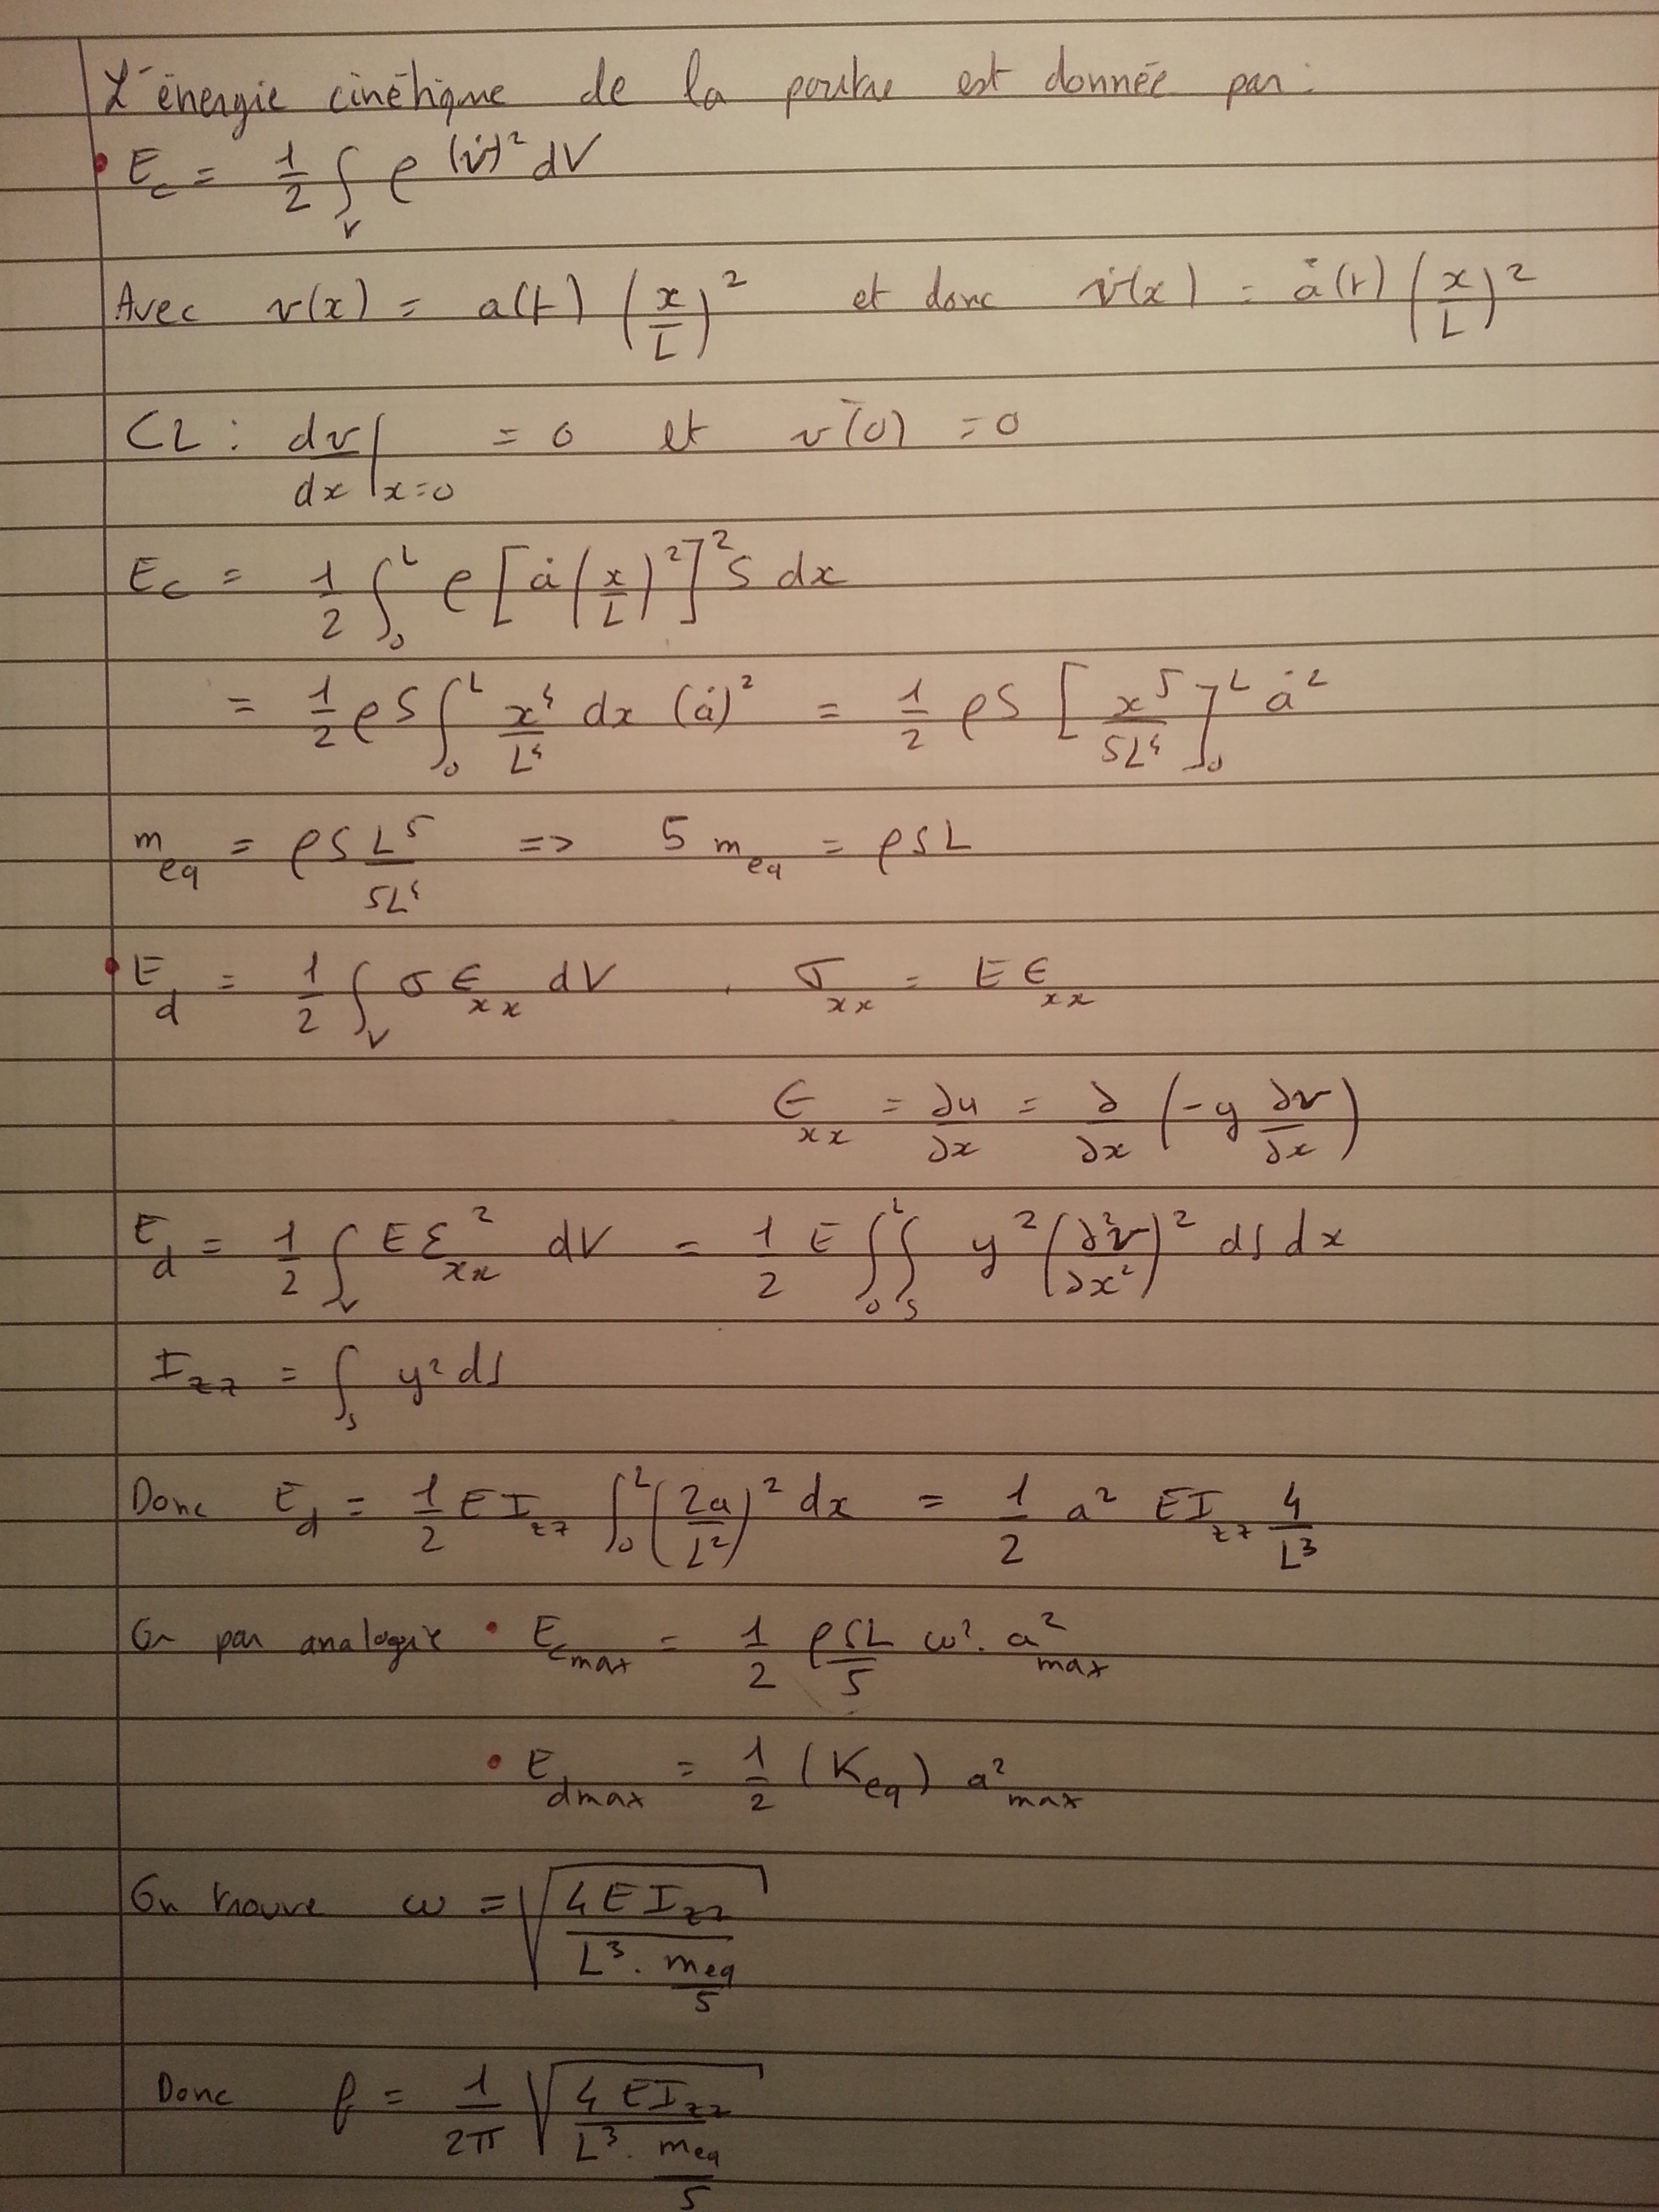 L'énergie cinétique de la poutre est donnée par:
• E_c = 1/2 ∫_V ρ (v̇)² dV
Avec v(x) = a(t) (x/L)² et donc v̇(x) = ȧ(t) (x/L)²
CL : dv/dx|_{x=0} = 0 et v(0) = 0
E_c = 1/2 ∫_0^L ρ [ȧ (x/L)²]² S dx
= 1/2 ρS ∫_0^L x⁴/L⁴ dx (ȧ)² = 1/2 ρS [x⁵/5L⁴]_0^L ȧ²
m_eq = ρS L⁵/5L⁴ => 5 m_eq = ρSL
• E_d = 1/2 ∫_V σ ϵ_xx dV , σ_xx = E ϵ_xx
ϵ_xx = ∂u/∂x = ∂/∂x (-y ∂v/∂x)
E_d = 1/2 ∫_V E ε_xx² dV = 1/2 E ∫_0^L ∫_S y² (∂²v/∂x²)² dS dx
I_zz = ∫_S y² dS
Donc E_d = 1/2 E I_zz ∫_0^L (2a/L²)² dx = 1/2 a² EI_zz 4/L³
Or par analogie • E_cmax = 1/2 ρSL/5 ω². a²_max
• E_dmax = 1/2 (K_eq) a²_max
On trouve ω = √(4EI_zz / (L³ . m_eq/5))
Donc f = 1/2π √(4EI_zz / (L³ . m_eq/5))